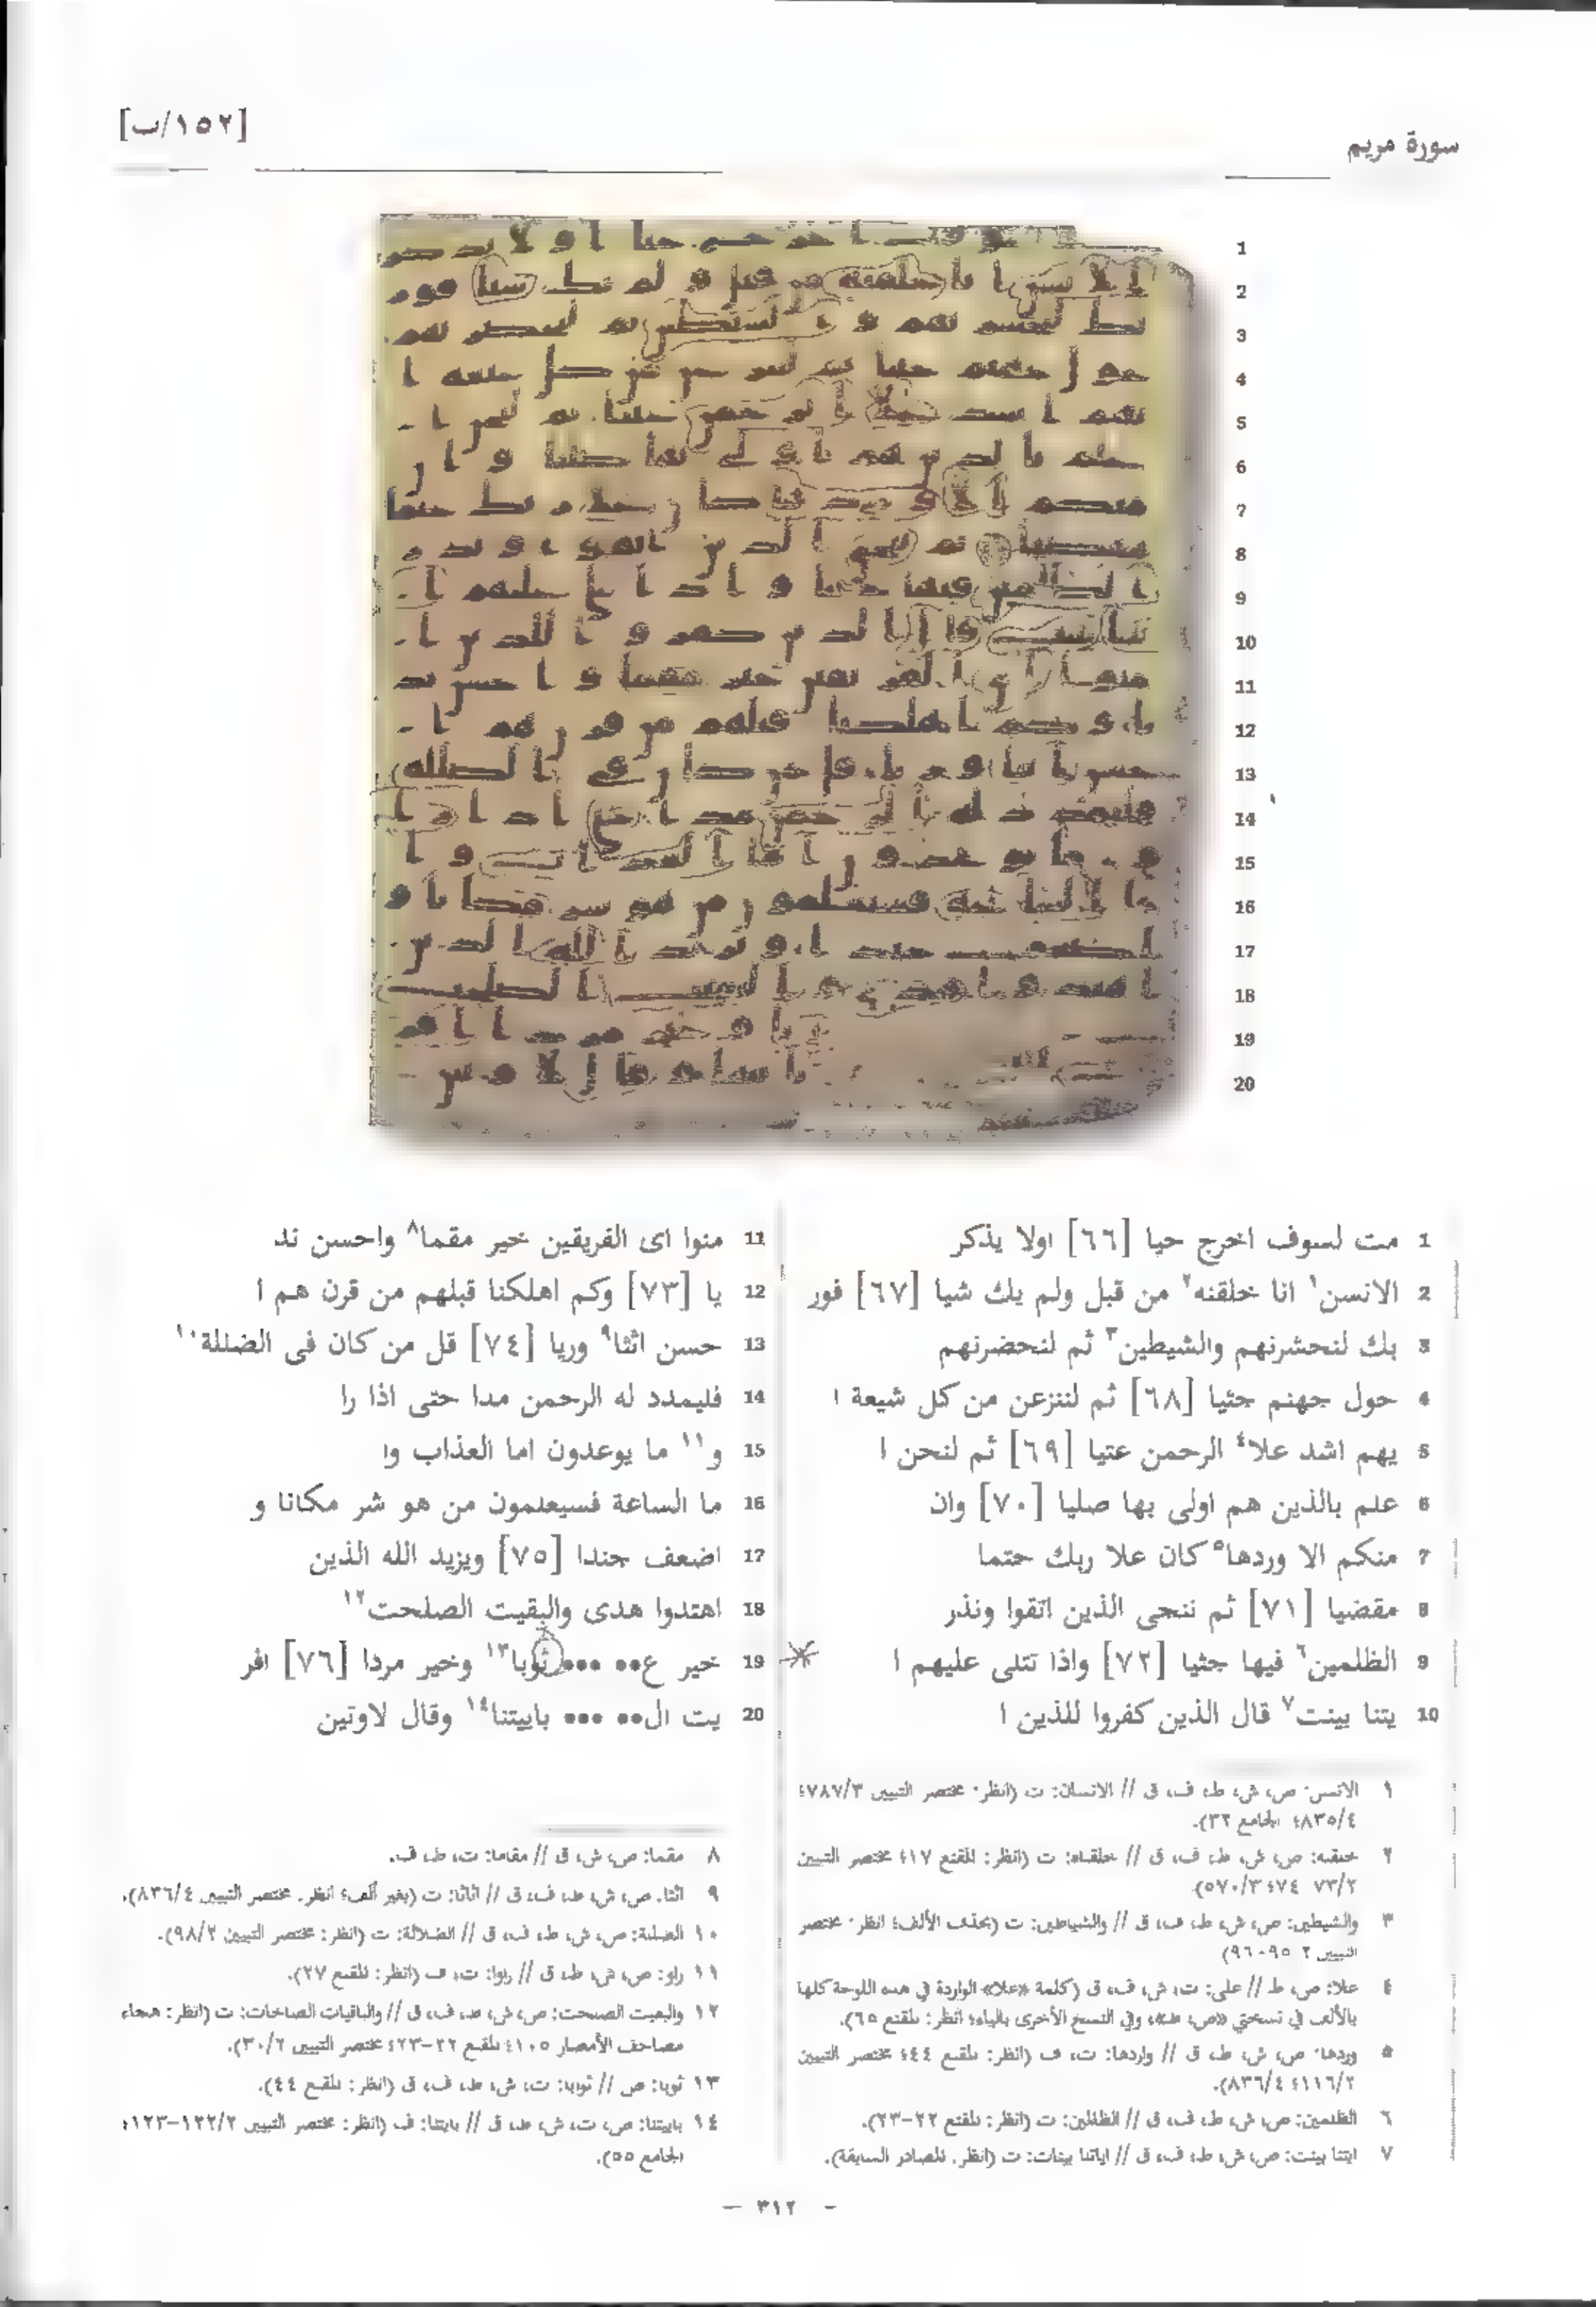 [١٥٢/ب]
سورة مريم
1
2
3
4
5
6
7
8
9
10
11
12
13
14
15
16
17
18
19
20
1 مت لسوف اخرج حيا [٦٦] اولا يذكر
2 الانسن١ انا خلقنه٢ من قبل ولم يك شيا [٦٧] فور
3 بك لنحشرنهم والشيطين٣ ثم لنحضرنهم
4 حول جهنم جثيا [٦٨] ثم لننزعن من كل شيعة ا
5 يهم اشد علا٤ الرحمن عتيا [٦٩] ثم لنحن ا
6 علم بالذين هم اولى بها صليا [٧٠] وان
7 منكم الا وردها٥ كان علا ربك حتما
8 مقضيا [٧١] ثم ننجى الذين اتقوا ونذر
9 الظلمين٦ فيها جثيا [٧٢] واذا تتلى عليهم ا
10 يتنا بينت٧ قال الذين كفروا للذين ا
11 منوا اى الفريقين خير مقما٨ واحسن ند
12 يا [٧٣] وكم اهلكنا قبلهم من قرن هم ا
13 حسن اثثا٩ وريا [٧٤] قل من كان فى الضللة١٠
14 فليمدد له الرحمن مدا حتى اذا را
15 و١١ ما يوعدون اما العذاب وا
16 ما الساعة فسيعلمون من هو شر مكانا و
17 اضعف جندا [٧٥] ويزيد الله الذين
18 اهتدوا هدى والبقيت الصلحت١٢
19 خير ع•• ••• ثوبا١٣ وخير مردا [٧٦] افر
20 يت ال•• ••• باييتنا١٤ وقال لاوتين
١ الانسن: ص، ش، ط، ف، ق // الانسان: ت (انظر: مختصر التبيين ٧٨٧/٣؛
٨٣٥/٤؛ الجامع ٣٢).
٢ خلقنه: ص، ش، ط، ف، ق // خلقناه: ت (انظر: المقنع ١٧؛ مختصر التبيين
٧٣/٢ ٧٤؛ ٥٧٠/٣).
٣ والشيطين: ص، ش، ط، ف، ق // والشياطين: ت (بحذف الألف؛ انظر: مختصر
التبيين ٢ ٩٥-٩٦)
٤ علا: ص، ط // على: ت، ش، ف، ق (كلمة «علا» الواردة في هذه اللوحة كلها
بالألف في نسختي «ص، ط»، وفي النسخ الأخرى بالياء؛ انظر: المقنع ٦٥).
٥ وردها: ص، ش، ط، ق // واردها: ت، ف (انظر: المقنع ٤٤؛ مختصر التبيين
١١٦/٢؛ ٨٣٦/٤).
٦ الظلمين: ص، ش، ط، ف، ق // الظالمين: ت (انظر: المقنع ٢٢-٢٣).
٧ ايتنا بينت: ص، ش، ط، ف، ق // اياتنا بينات: ت (انظر: المصادر السابقة).
٨ مقما: ص، ش، ق // مقاما: ت، ط، ف.
٩ اثثا: ص، ش، ط، ف، ق // اثاثا: ت (بغير ألف؛ انظر: مختصر التبيين ٨٣٦/٤).
١٠ الضللة: ص، ش، ط، ف، ق // الضلالة: ت (انظر: مختصر التبيين ٩٨/٢).
١١ راو: ص، ش، ط، ق // راوا: ت، ف (انظر: المقنع ٢٧).
١٢ والبقيت الصلحت: ص، ش، ط، ف، ق // والباقيات الصالحات: ت (انظر: هجاء
مصاحف الأمصار ١٠٥؛ المقنع ٢٢-٢٣؛ مختصر التبيين ٣٠/٢).
١٣ ثوبا: ص // ثوابا: ت، ش، ط، ف، ق (انظر: المقنع ٤٤).
١٤ باييتنا: ص، ت، ش، ط، ق // بايتنا: ف (انظر: مختصر التبيين ١٢٢/٢-١٢٣؛
الجامع ٥٥).
- ٣١٢ -